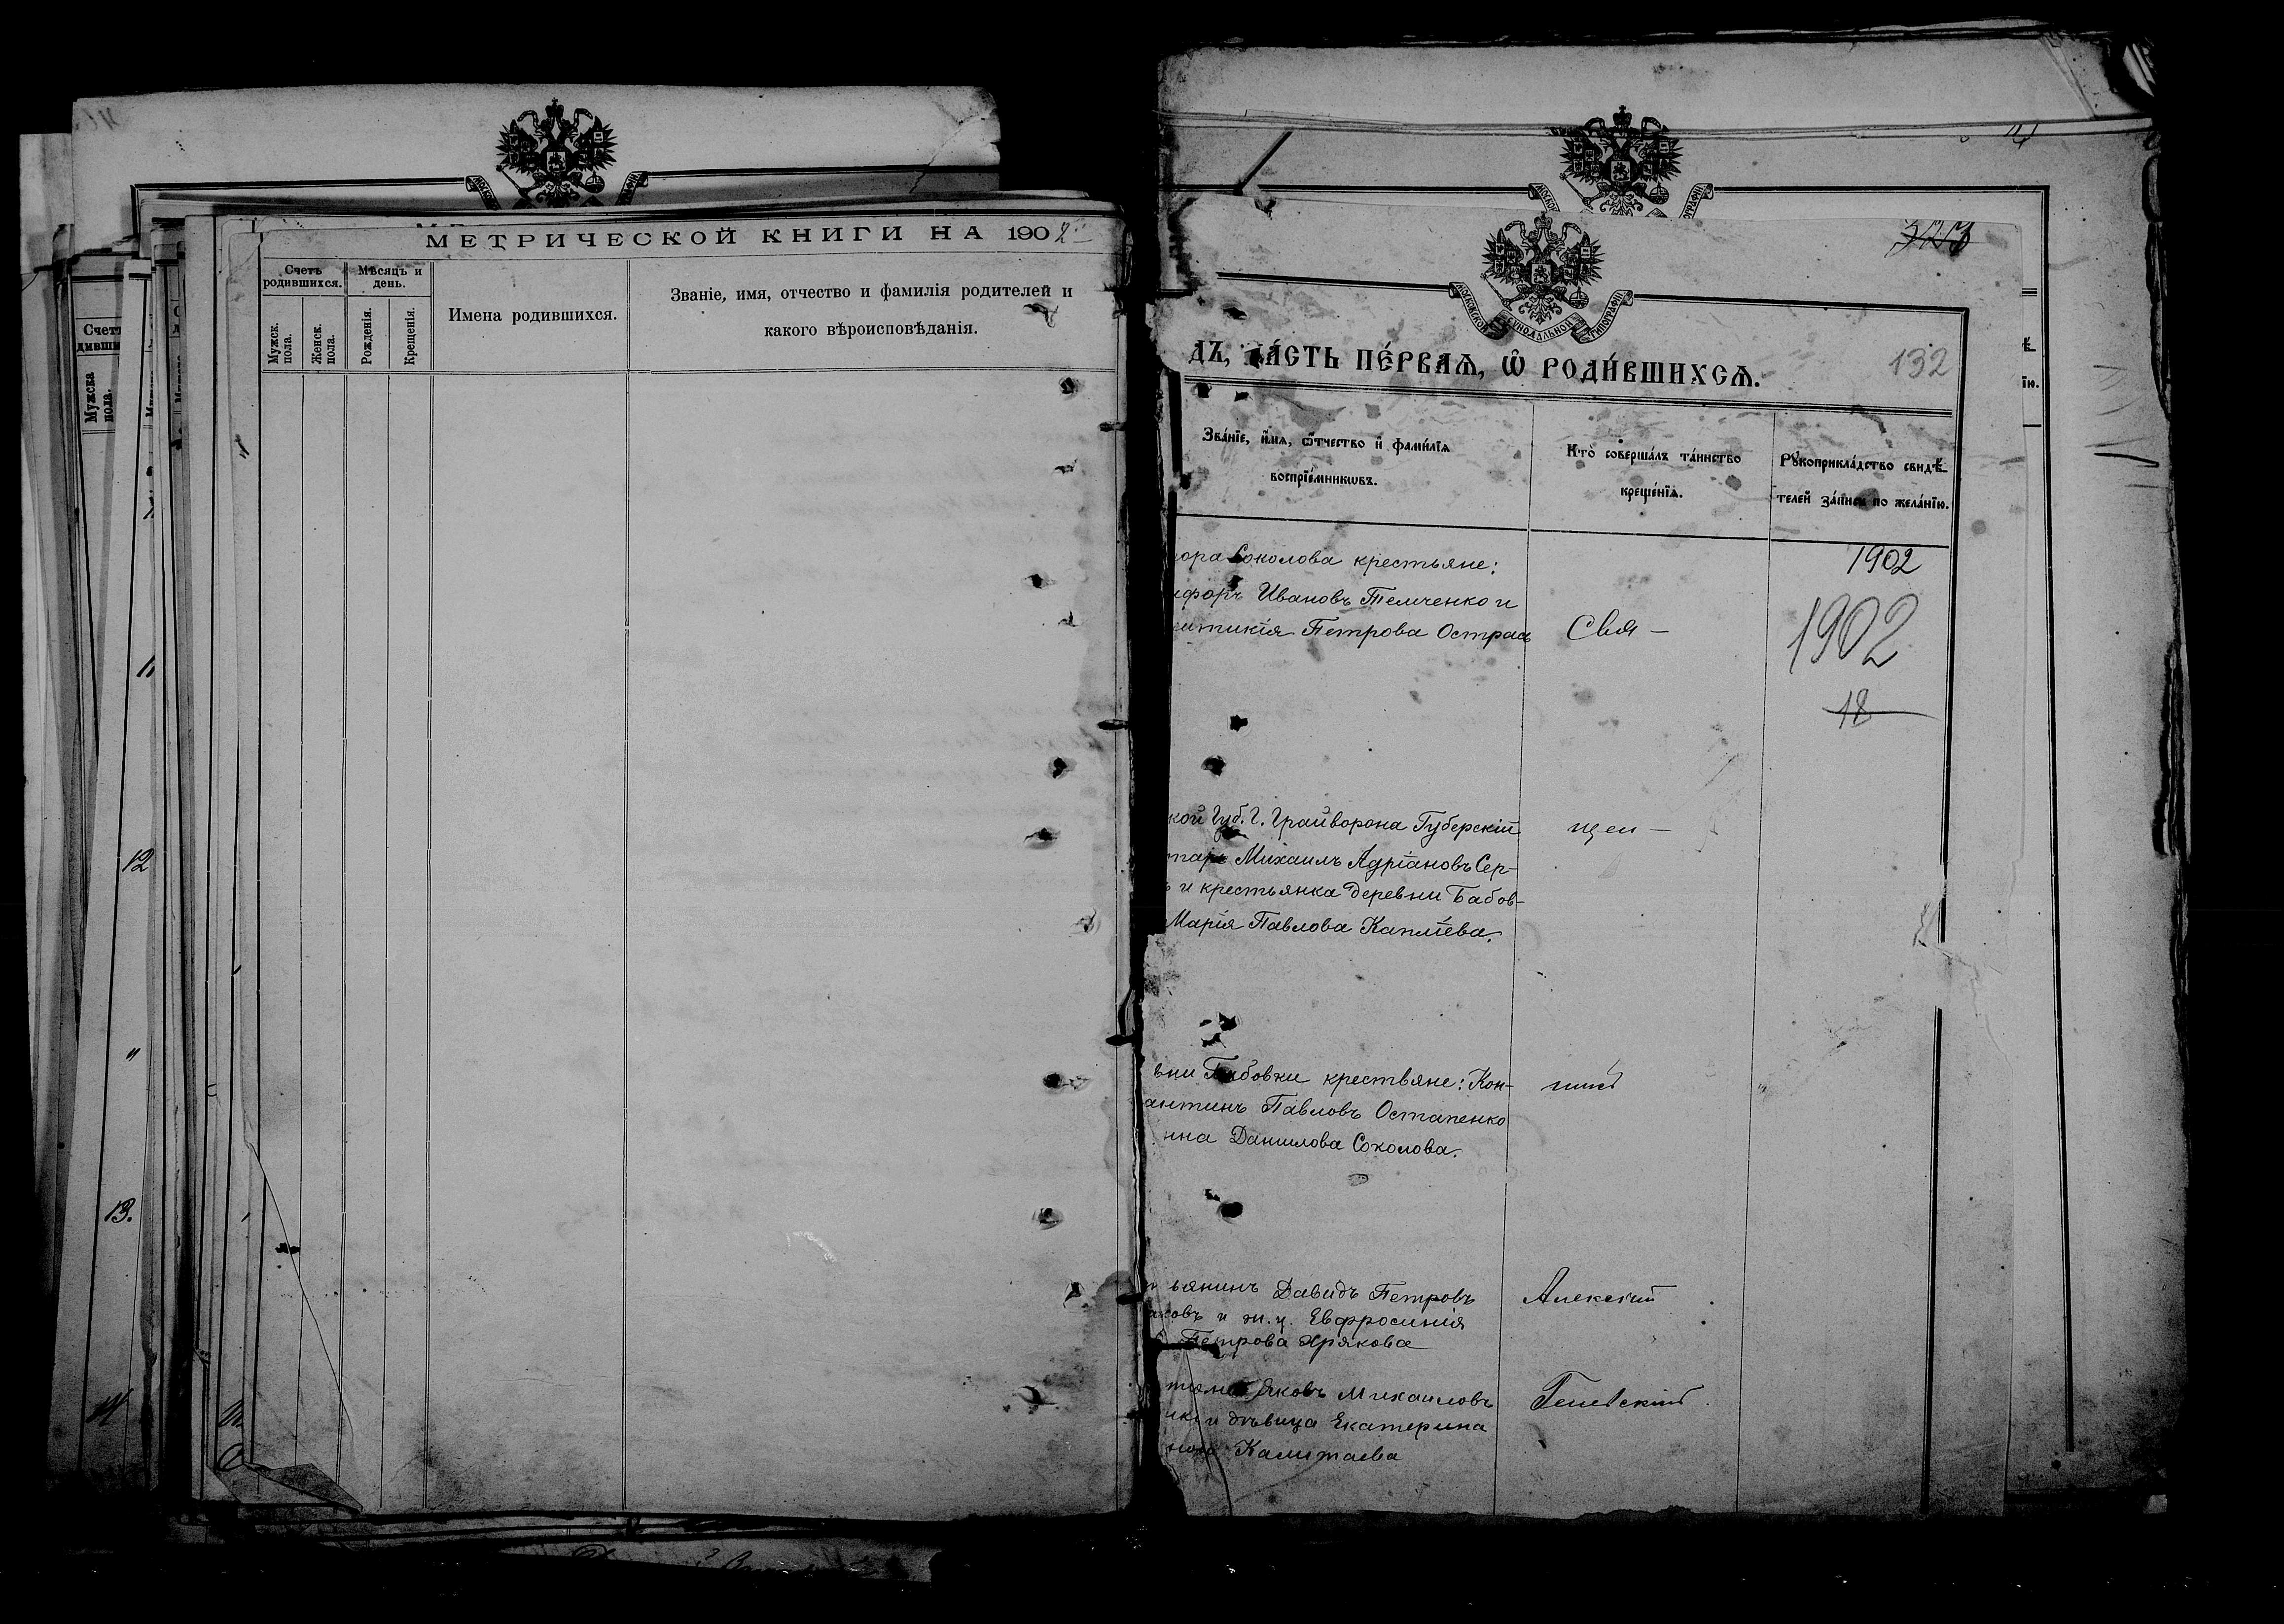 МЕТРИЧЕСКОЙ КНИГИ НА 1902
Счетъ родившихся.
Мѣсяцъ и день.
Мужск. пола.
Женск. пола.
Рожденія.
Крещенія.
Имена родившихся.
Званіе, имя, отчество и фамилія родителей и
какого вѣроисповѣданія.
Мужска пола.
12
13.
МОСКОВСКОЙ СѴНОДАЛЬНОЙ ТИПОГРАФІИ
132
ДЪ, ЧА́СТЬ ПЕ́РВАѦ, Ѽ РОДИ́ВШИХСѦ.
Зва́нїе, и҆́мѧ, ѻ҆́тчество и҆ фами́лїѧ
воспрїе́мникѡвъ.
Кто̀ соверша́лъ та́инство
креще́нїѧ.
Рꙋкоприкла́дство свидѣ́-
телей за́писи по жела́нїю.
ора Соколова крестьяне:
ифоръ Ивановъ Темченко и
Петрова Остраа
Свя-
1902
1902
18
кой Губ. Г. Грайворона Губерскій
Михаилъ Адріановъ Сер-
и крестьянка деревни Бабов-
Марія Павлова Каплiева.
щен-
вни Бабовки крестьяне: Кон-
антинъ Павловъ Остапенко
нна Данилова Соколова.
никъ
ьянинъ Давидъ Петровъ
ковъ и ж. ц. Евфросинія
Петрова Хрякова
Алексій
Яковъ Михаиловъ
и дѣвица Екатерина
Калитаева